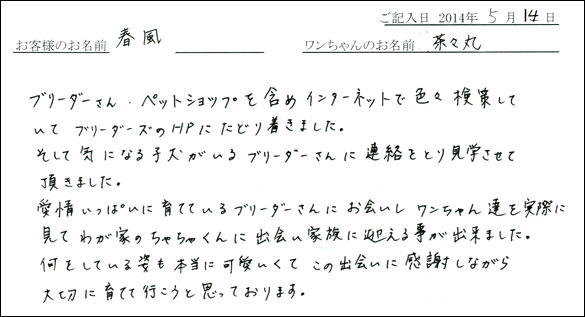 ご記入日 2014年 5月 14日
お客様のお名前 春風 ワンちゃんのお名前 茶々丸
ブリーダーさん・ペットショップを含めインターネットで色々検策して
いて ブリーダーズのHPにたどり着きました。
そして気になる子犬がいるブリーダーさんに連絡をとり見学させて
頂きました。
愛情いっぱいに育てているブリーダーさんにお会いし ワンちゃん達を実際に
見て わが家のちゃちゃくんに出会い家族に迎える事が出来ました。
何をしている姿も本当に可愛いくて この出会いに感謝しながら
大切に育てて行こうと思っております。